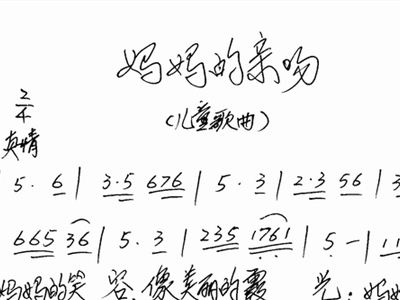 妈妈的亲吻
(儿童歌曲)
2/4
真情
| 5· 6 | 3·5 676 | 5· 3 | 2·3 56 | 3
665 36 | 5· 3 | 235 1761 | 5 - | 11
妈妈的笑 容,像美丽的 光,妈妈